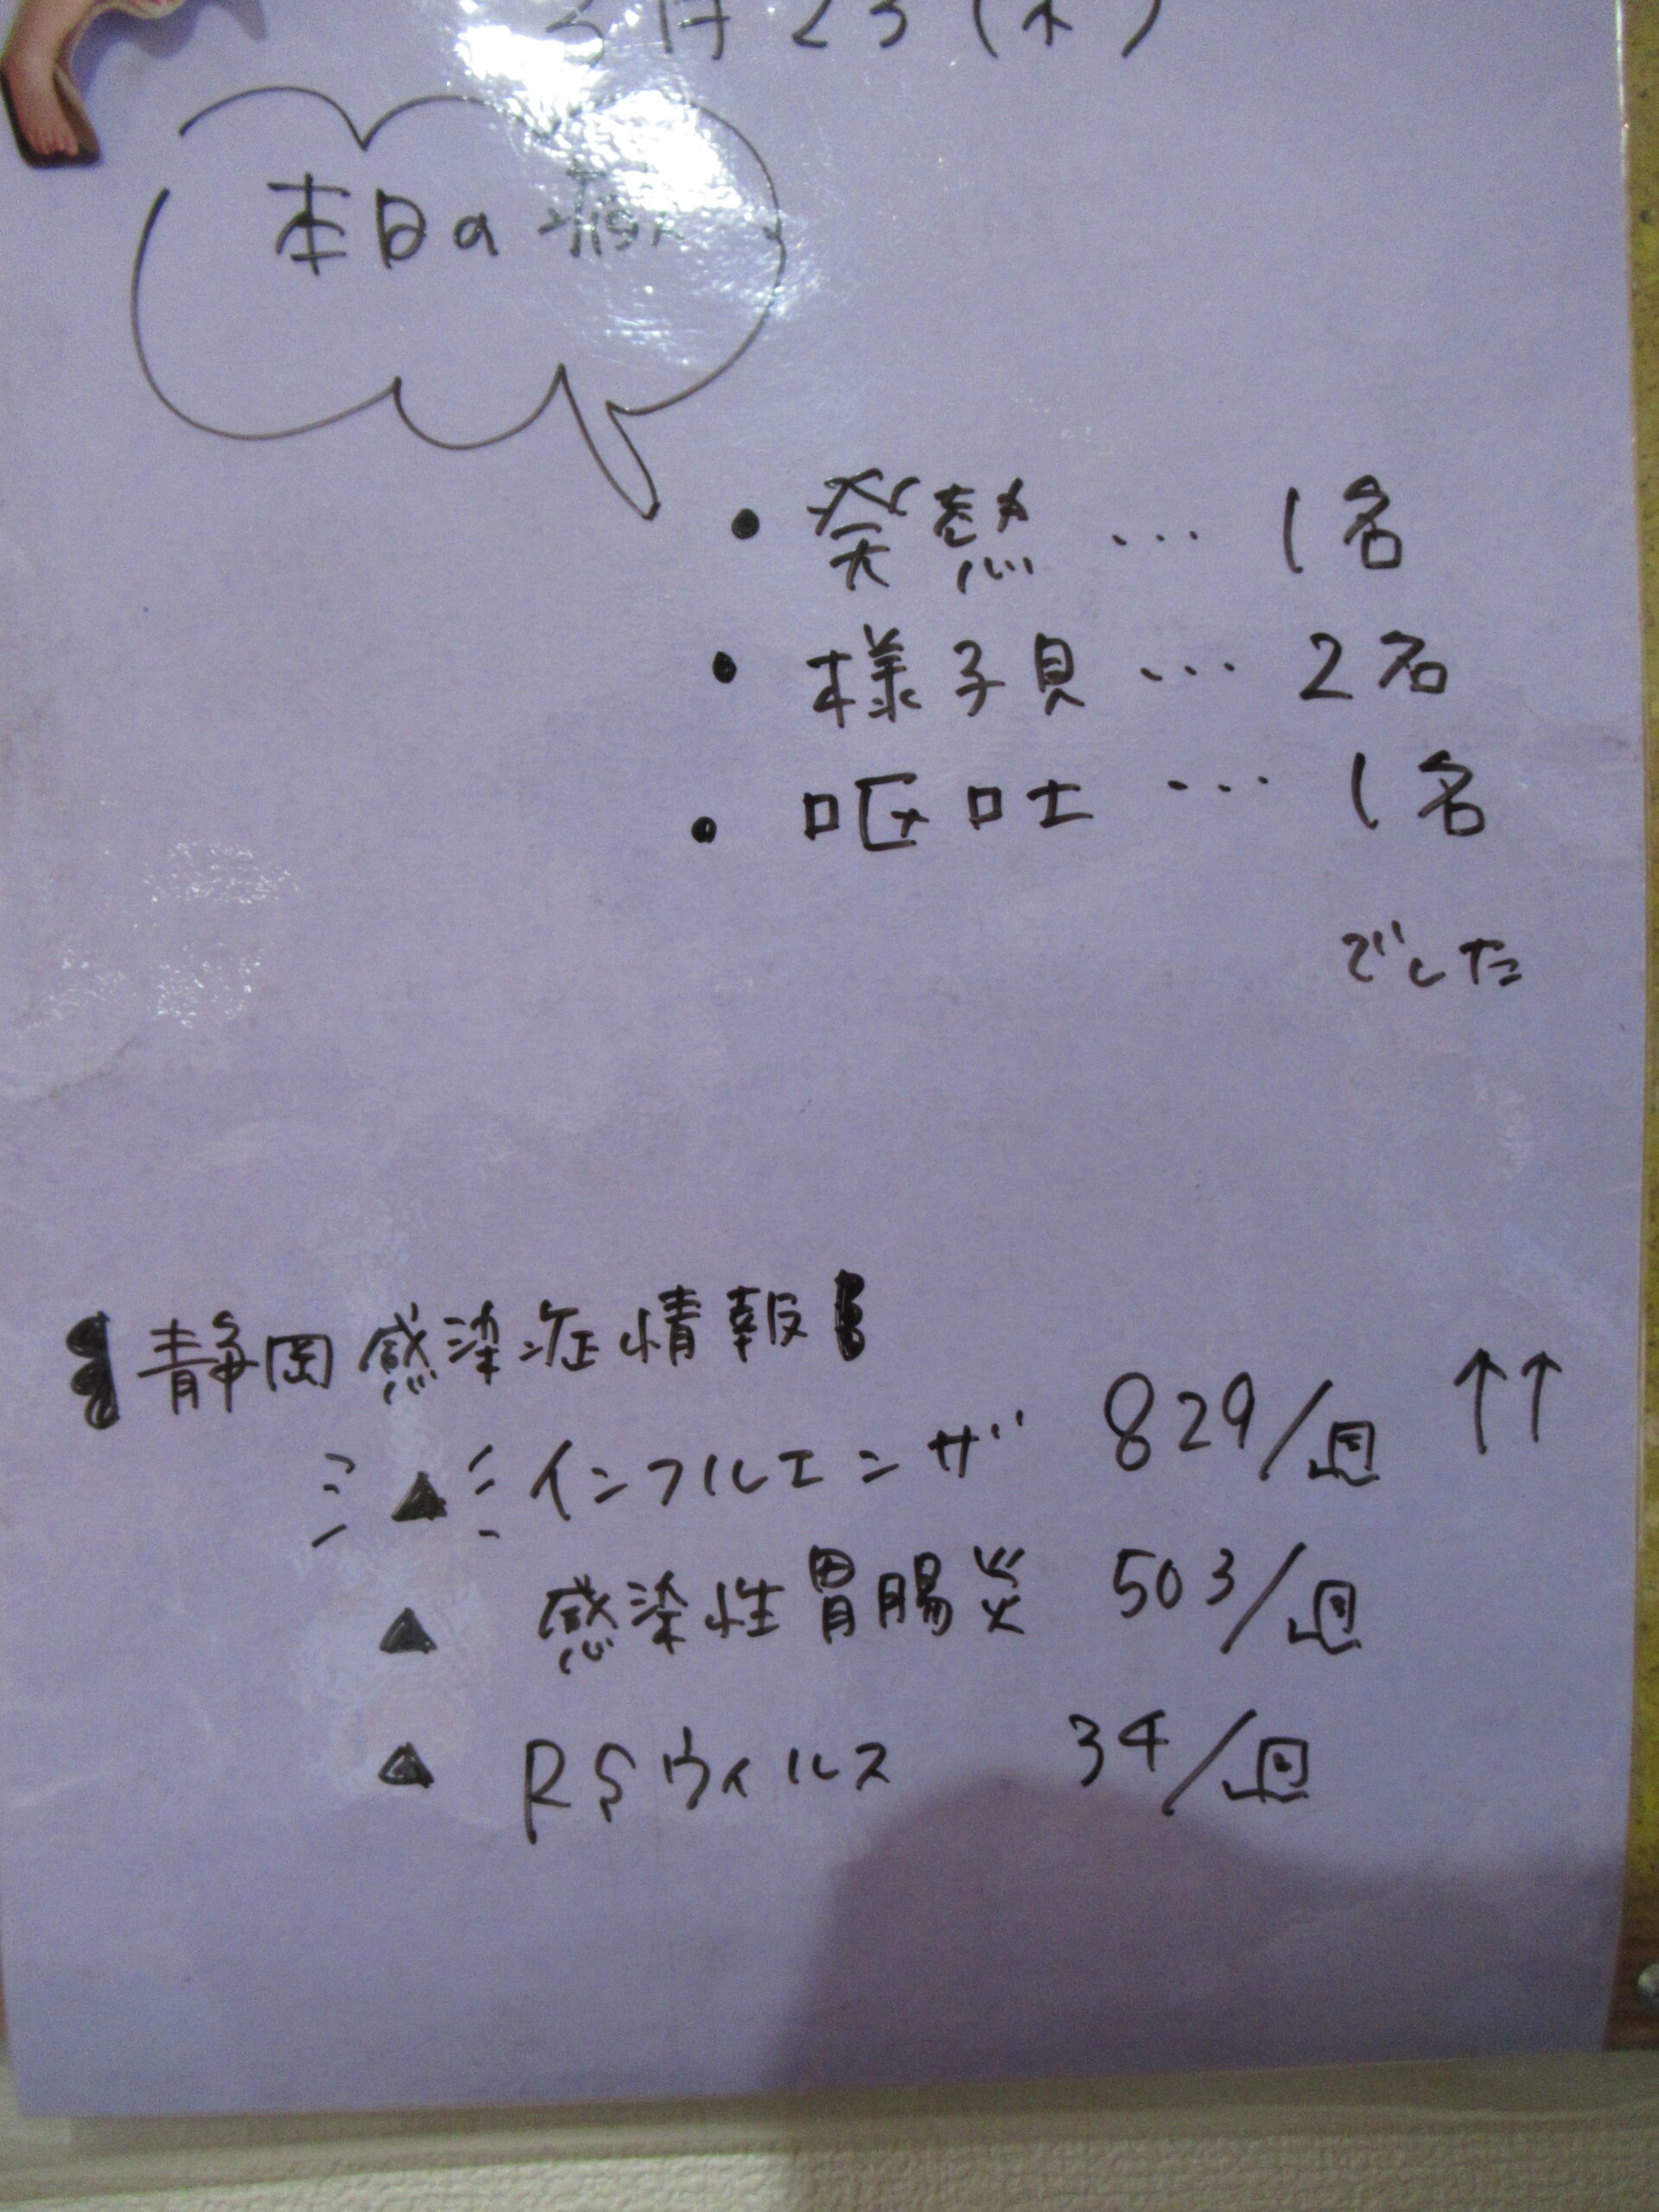 3月23(木)
本日の
・発熱…1名
・様子見…2名
・呕吐…1名
でした
静岡感染症情報
▲インフルエンザ 829/週 ↑↑
▲感染性胃腸炎 503/週
▲RSウィルス 34/週